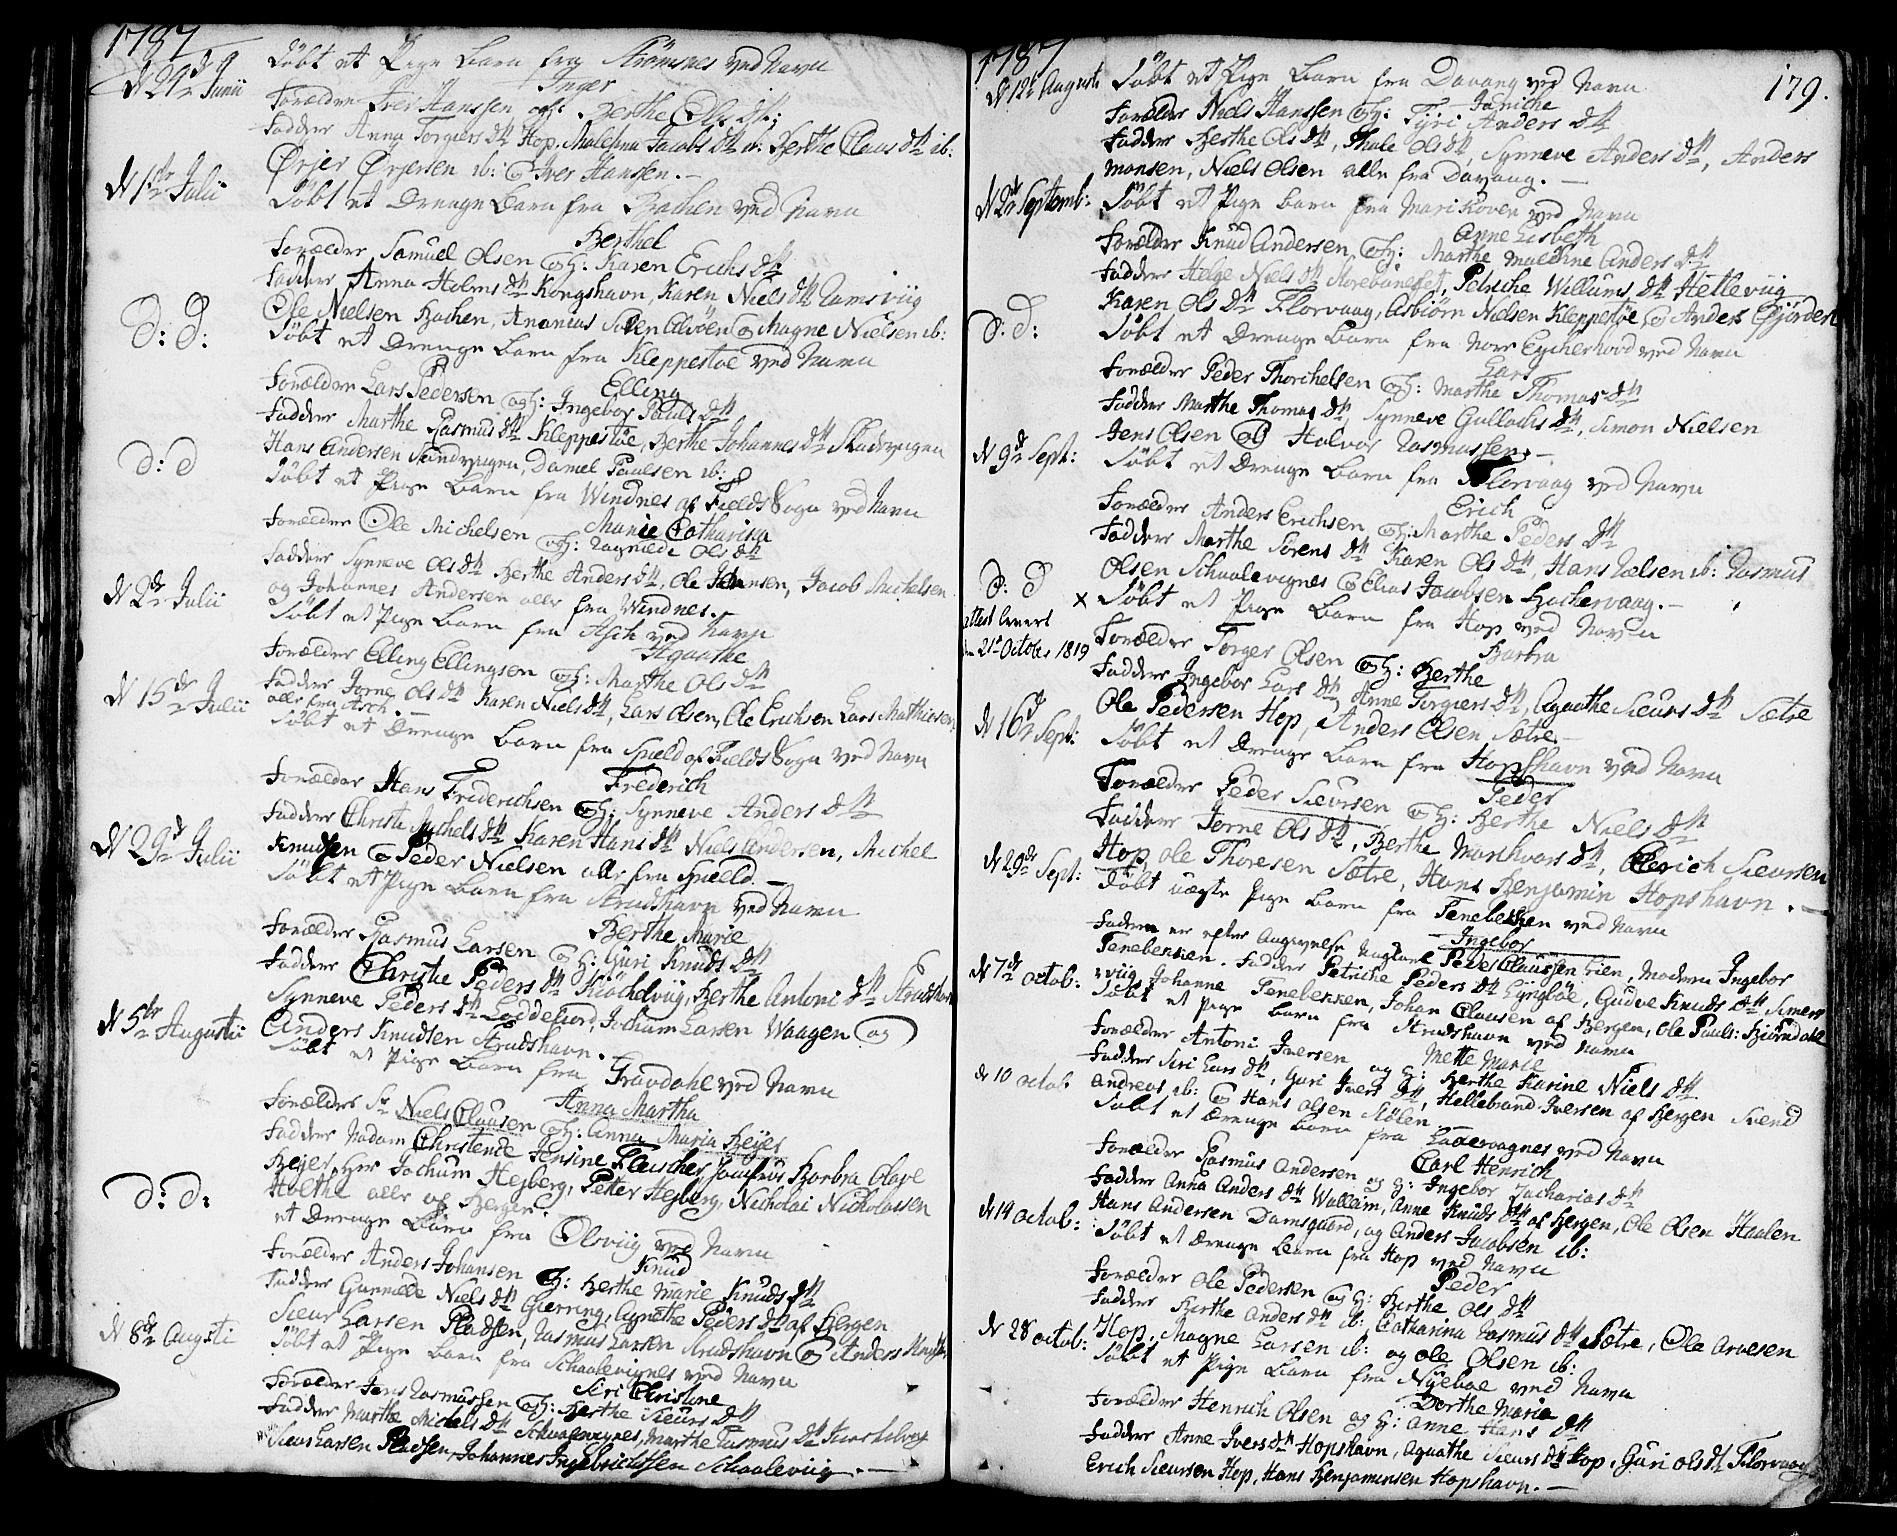 1787
d 24de Junii Døbt et Pige Barn fra Strømsnes ved Navn
Inger
Forældre Iver Hanssen og H: Berthe Ols dtt:
Fadder Anna Torgiers dtt Hop, Malena Jacobs dtt ib. Berthe Claus dtt ib:
Ørjer Ørjersen ib: og Iver Hanssen. –
d 1ste Julii Døbt et Drenge Barn fra Backen ved Navn
Berthel
Forældre Samuel Olsen og H: Karen Erichs dtt
Fadder Anna Holms dtt Kongshavn, Karen Niels dtt Ramsviig
Ole Nielsen Backen, Ananias Alvøen og Magne Nielsen ib:
D: D: Døbt et Drenge Barn fra Kleppestøe ved Navn
Elling
Forældre Lars Pedersen og H: Ingebor Pauls dtt
Fadder Marthe Rasmus dtt Kleppestøe, Berthe Johannes dtt Strudsvigen
Hans Andersen Strudsvigen, Daniel Paulsen ib:
D: D Døbt et Pige Barn fra Windnes af Fields Sogn ved Navn
Marie Catharina
Forældre Ole Michelsen og H: Ragnilde Ols dtt
Fadder Synneve Ols dtt Berthe Anders dtt, Ole Johansen, Jacob Michelsen
og Johannes Andersen alle fra Windnes. –
d 2de Julii Døbt et Pige Barn fra Ask ved Navn
Agaathe
Forældre Elling Ellingsen og H: Marthe Ols dtt
Fadder Jorne Ols dtt Karen Niels dtt, Lars Olsen, Ole Erichsen Lars Mathiesen
alle fra Asch. –
d 15de Julii Døbt et Drenge Barn fra Spield af Fields Sogn ved Navn
Frederich
Forældre Hans Friderichsen og H: Synneve Anders dtt
Fadder Christi Michels dtt Karen Hans dtt Niels Andersen, Michel
Knudsen og Peder Nielsen alle fra Spield. –
d 29d Julii Døbt et Pige Barn fra Strudshavn ved Navn
Berthe Marie
Forældre Rasmus Larsen og H: Guri Knuds dtt
Fadder Christie Peders dtt Kiøckelviig, Berthe Antoni dtt Strudshavn
Synneve Peders dtt Loddefiord, Jochum Larsen Waagen og
Anders Knudsen Strudshavn.
d 5te Augustii Døbt et Pige Barn fra Gravdahl ved Navn
Anna Martha
Forældre Sr Niels Clausen og H: Anna Maria Beyer
Fadder Madam Christence Jensine Fleischer Jomfrue Barbra Olave
Beyer, Her Jochum Hesberg, Petter Hesberg, Nicholai Nicholaisen
Holthe alle af Bergen.
D: D: et Drenge Barn fra Olsviig ved Navn
Knud
Forældre Anders Johansen og H: Berthe Marie Knuds dtt
Fadder Gunnilde Niels dtt Gierring, Agnethe Peders dtt af Bergen
Sieur Larsen Pladsen, Rasmus Larsen Strudshavn og Anders
d 8de Augusti Døbt et Pige Barn fra Schaalevignes ved Navn
Siri Christine
Forældre Jens Rasmussen og H: Berthe Sieurs dtt
Fadder Marthe Michels dtt Schaalevignes, Marthe Rasmus dtt
Sieur Larsen Pladsen, Johannes Ingebrichtsen Schaaleviig. –
1787
179.
d 12te Augusti Døbt et Pige Barn fra Davang ved Navn
Janiche
Forældre Niels Hanssen og H: Tyri Anders dtt
Fadder Berthe Ols dtt, Thale Ols dtt, Synneve Anders dtt, Anders
Monsen, Niels Olsen alle fra Davang. –
d 2de Septemb: Døbt et Pige Barn fra Marikoven ved Navn
Anne Lisbeth
Forældre Knud Andersen og H: Marthe Malene Anders dtt
Fadder Helge Niels dtt Storebuneset, Petriche Willums dtt Hetleviig
Karen Ols dtt Florvaag, Asbiørn Nielsen Kleppestøe, og Anders
D: D: Døbt et Drenge Barn fra Nore Eycherhovd ved Navn
Lars
Forældre Peder Thorchelsen og H: Marthe Thomas dtt
Fadder Marthe Thomas dtt, Synneve Gullachs dtt, Simon Nielsen
Jens Olsen og Halvor Rasmussen. –
d 9de Sept: Døbt et Drenge Barn fra Florvaag ved Navn
Erich
Forældre Anders Erichsen og H: Marthe Peders dtt
Fadder Marthe Sørens dtt Karen Ols dtt, Hans Nielsen ib: Rasmus
Olsen Schaalevignes og Elias Jacobsen Hachervaag. –
D: D x Døbt et Pige Barn fra Hop ved Navn
attest leveret
den 21de October 1819
Barbra
Forældre Torger Olsen og H: Berthe
Fadder Ingebor Lars dtt, Anne Torgiers dtt, Agaathe Sieurs dtt Sætre
Ole Pedersen Hop, Anders Olsen Sætre. –
d 16d Sept: Døbt et Drenge Barn fra Hopshavn ved Navn
Peder
Forældre Peder Sieursen og H: Berthe Niels dtt
Fadder Jorne Ols dtt, Berthe Markvors dtt, Erich Sieursen
Hop, Ole Thoresen Sætre, Hans Benjamin Hopshavn. –
d 29de Sept: Døbt uægte Pige Barn fra Tenebekken ved Navn
Ingebor
Faderen er efter Angivelse Ungkarl Peder Claussen Lien, Moderen Ingebor
Tenebekken. Fadder Petriche Peders dtt Lyngbøe, Gudve Knuds dtt Simers
viig Johanne Tenebekken, Johan Clausen af Bergen, Ole Pauls: Biørndahl
d 7de octob: Døbt et Pige Barn fra Strudshavn ved Navn
Mette Marie
Forældre Antoni Iversen og H: Berthe Karine Niels dtt
Fadder Siri Lars dtt, Guri Ivers dtt, Hellebrand Iversen af Bergen Svend
Andreas ib: og Hans Olsen Stølen
d 10 octob Døbt et Drenge Barn fra Laxevaagnes ved Navn
Carl Henrich
Forældre Rasmus Andersen og H: Ingebor Zacharias dtt
Fadder Anna Anders dtt Walleim, Anne Knuds dtt af Bergen, Ole Olsen Haalen
Hans Andersen Damsgaard, og Anders Jacobsen ib:
d 14 octob: Døbt et Drenge Barn fra Hop ved Navn
Peder
Forældre Ole Pedersen og H: Berthe Ols dtt
Fadder Berthe Anders dtt ib: Catharina Rasmus dtt Sætre, Ole Arvesen
Hop, Magne Larsen ib: og Ole Olsen ib:
d 28 octob: Døbt et Pige Barn fra Nyeboe ved Navn
Berthe Maria
Forældre Henrich Olsen og H: Anne Hans dtt
Fadder Anne Ivers dtt Hopshavn, Agaathe Sieurs dtt Hop, Guri Ols dtt Florvaag
Erich Sieursen Hop, Hans Benjaminsen Hopshavn. –